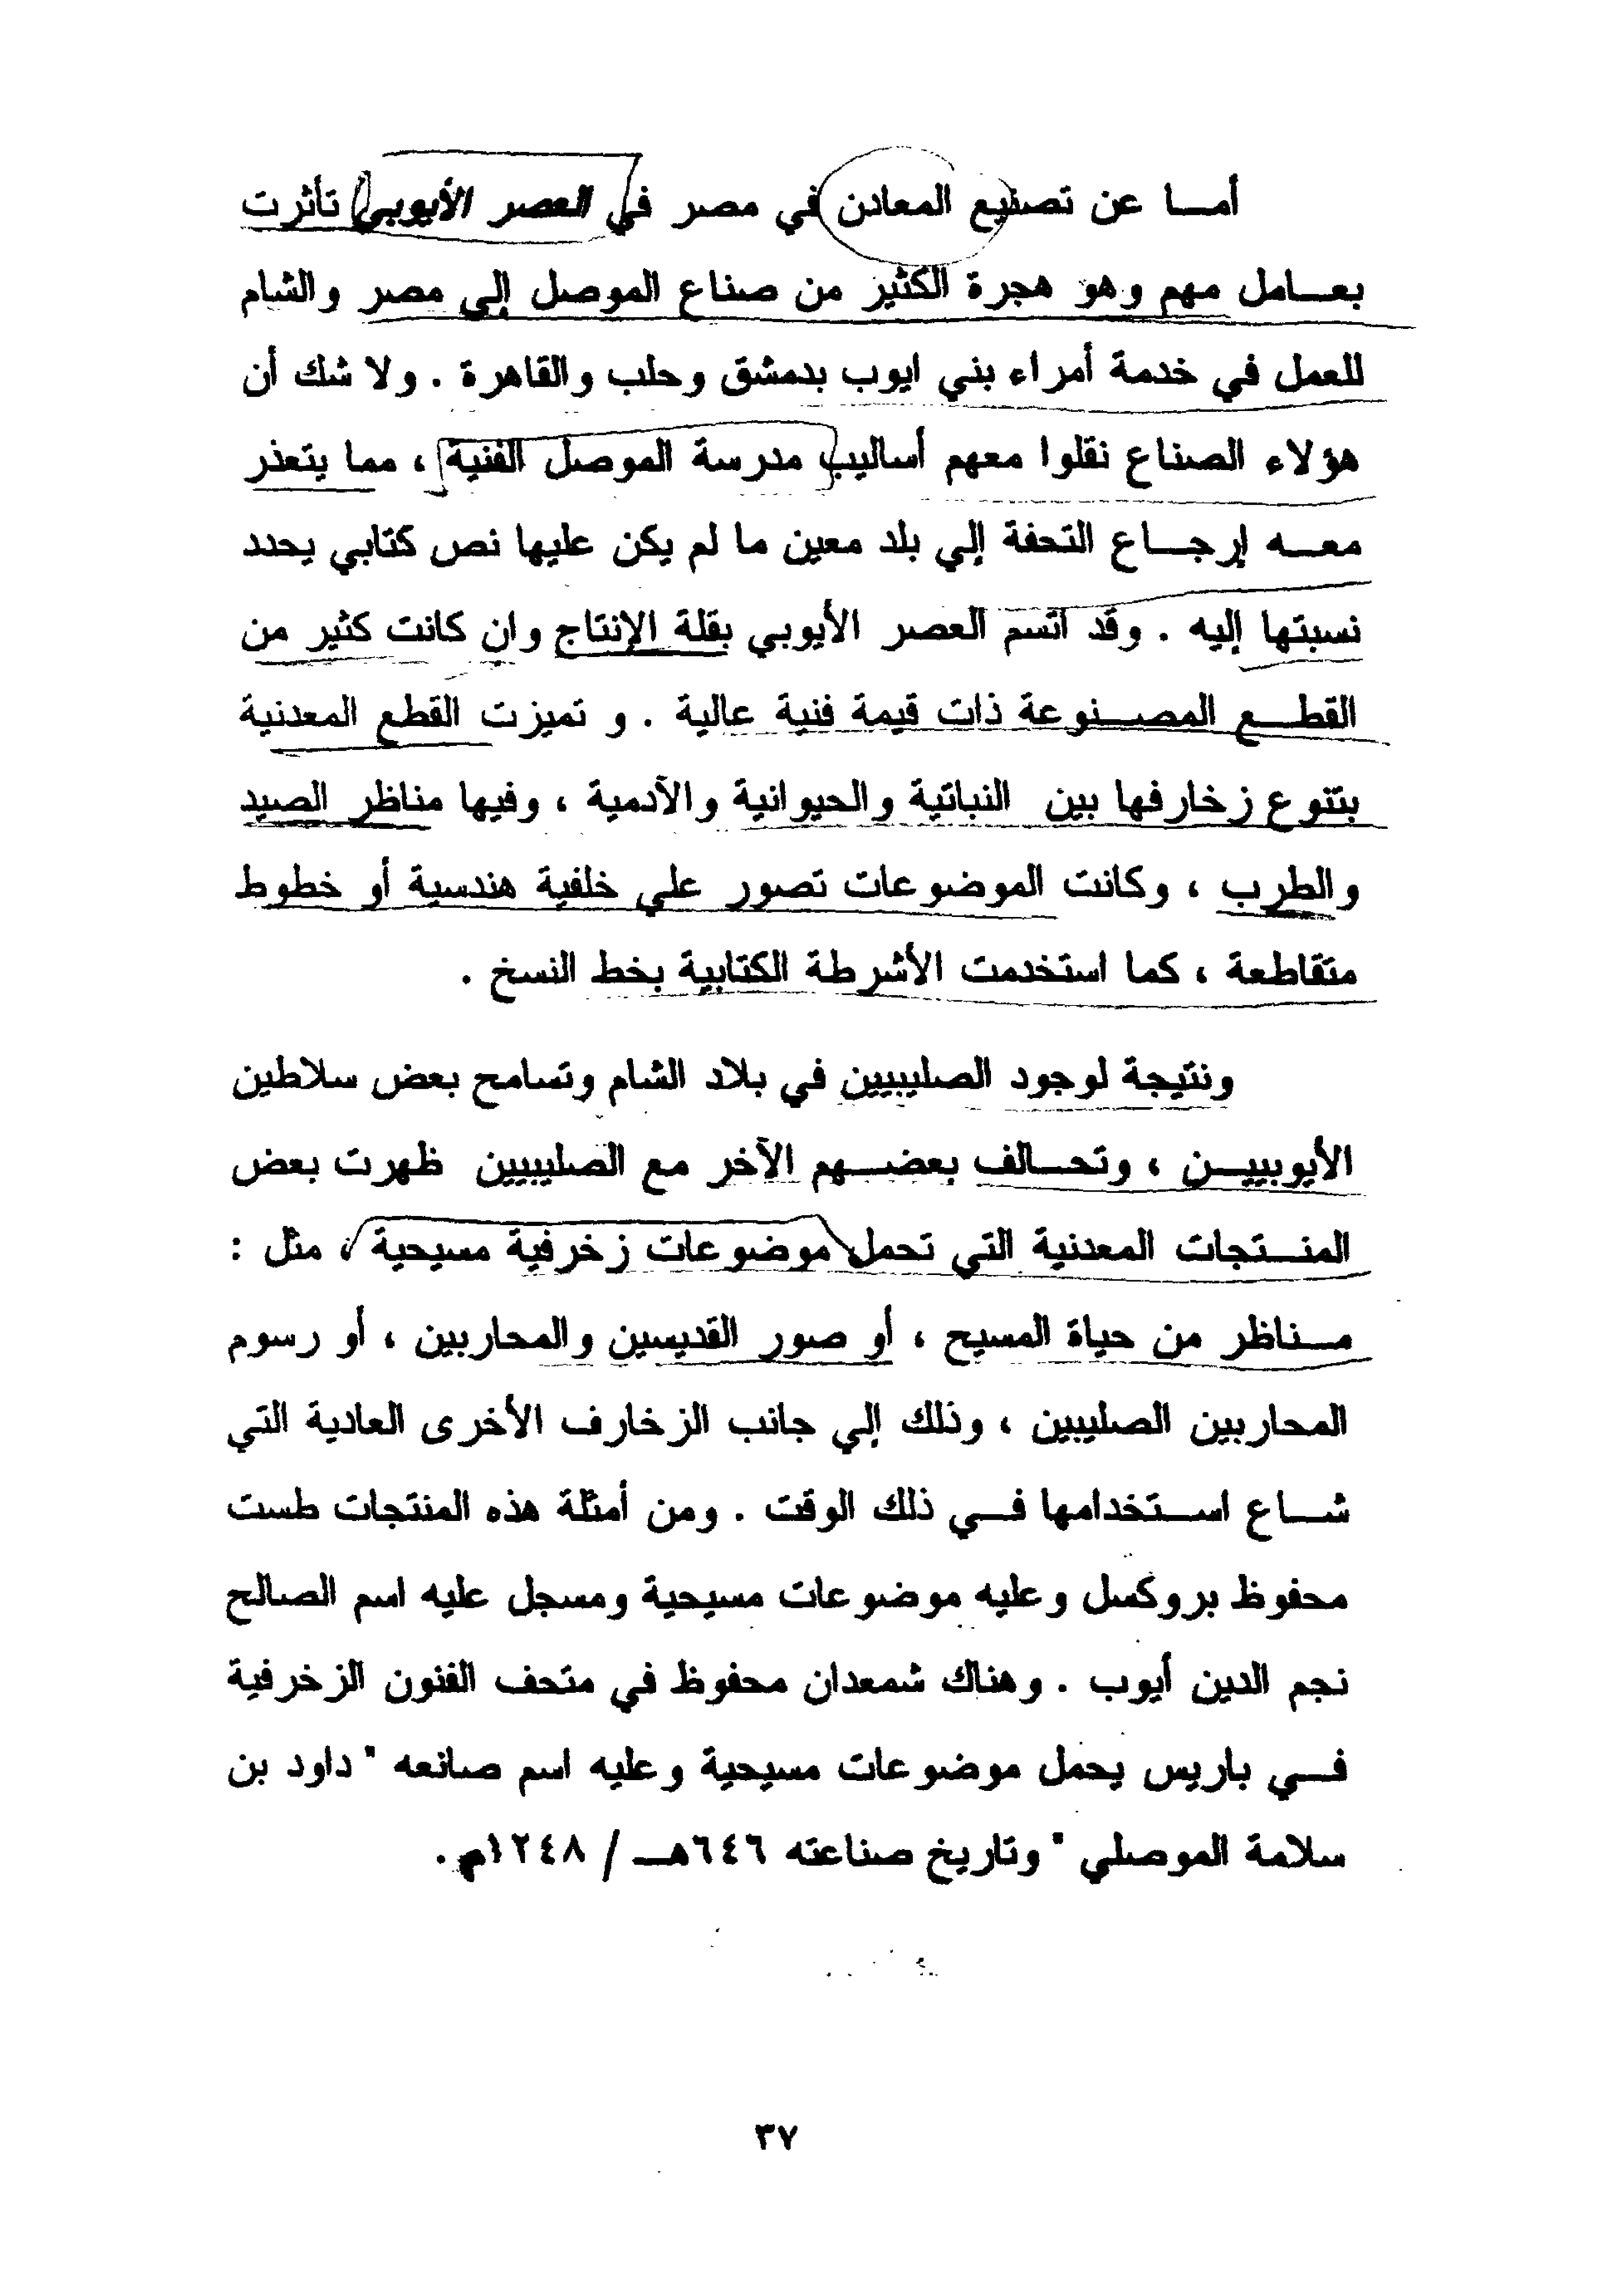 أما عن تصنيع المعادن في مصر في العصر الأيوبي تأثرت
بعامل مهم وهو هجرة الكثير من صناع الموصل إلي مصر والشام
للعمل في خدمة أمراء بني ايوب بدمشق وحلب والقاهرة . ولا شك أن
هؤلاء الصناع نقلوا معهم أساليب مدرسة الموصل الفنية ، مما يتعذر
معه إرجاع التحفة إلي بلد معين ما لم يكن عليها نص كتابي يحدد
نسبتها إليه . وقد اتسم العصر الأيوبي بقلة الإنتاج وان كانت كثير من
القطع المصنوعة ذات قيمة فنية عالية . و تميزت القطع المعدنية
بتنوع زخارفها بين النباتية والحيوانية والآدمية ، وفيها مناظر الصيد
والطرب ، وكانت الموضوعات تصور علي خلفية هندسية أو خطوط
متقاطعة ، كما استخدمت الأشرطة الكتابية بخط النسخ .
ونتيجة لوجود الصليبيين في بلاد الشام وتسامح بعض سلاطين
الأيوبيين ، وتحالف بعضهم الآخر مع الصليبيين ظهرت بعض
المنتجات المعدنية التي تحمل موضوعات زخرفية مسيحية ، مثل :
مناظر من حياة المسيح ، أو صور القديسين والمحاربين ، أو رسوم
المحاربين الصليبين ، وذلك إلي جانب الزخارف الأخرى العادية التي
شاع استخدامها في ذلك الوقت . ومن أمثلة هذه المنتجات طست
محفوظ بروكسل وعليه موضوعات مسيحية ومسجل عليه اسم الصالح
نجم الدين أيوب . وهناك شمعدان محفوظ في متحف الفنون الزخرفية
في باريس يحمل موضوعات مسيحية وعليه اسم صانعه " داود بن
سلامة الموصلي " وتاريخ صناعته ٦٤٦هـ / ١٢٤٨م .
٣٧